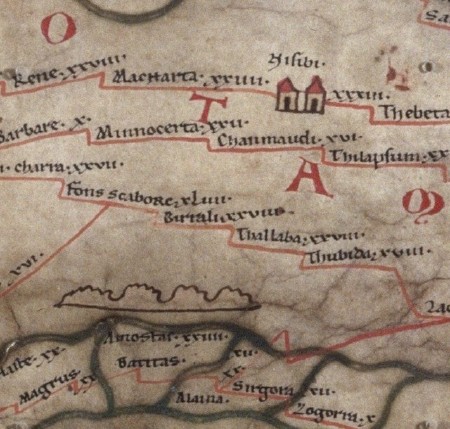 O
Nisibi.
Rene. xxviii.
Macharta. xxiiii.
xxxiii.
Thebeta
T
Barbare. x.
Minnocerta. xxii.
Chanmaudi. xvi.
Thilapsum. xx
charra. xxvii.
A
M
Fons scabore. xliii.
Birrali. xxviii.
Thallaba. xxviii.
Thubida. xviii.
xvi.
xxiii.
xx.
Batitas.
xii.
xx.
Magrus.
Alaina.
Singora. xii.
Zogorra. x